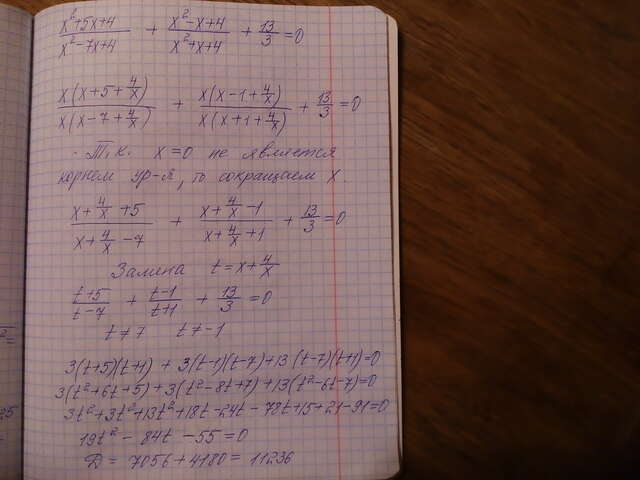 (x²+5x+4)/(x²-7x+4) + (x²-x+4)/(x²+x+4) + 13/3 = 0
x(x+5+4/x)/x(x-7+4/x) + x(x-1+4/x)/x(x+1+4/x) + 13/3 = 0
Т.к. x=0 не является
корнем ур-я, то сокращаем x.
(x+4/x+5)/(x+4/x-7) + (x+4/x-1)/(x+4/x+1) + 13/3 = 0
Замена t=x+4/x
(t+5)/(t-7) + (t-1)/(t+1) + 13/3 = 0
t≠7 t≠-1
3(t+5)(t+1) + 3(t-1)(t-7)+13(t-7)(t+1)=0
3(t²+6t+5)+3(t²-8t+7)+13(t²-6t-7)=0
3t²+3t²+13t²+18t-24t-78t+15+21-91=0
19t²-84t-55=0
D=7056+4180=11236